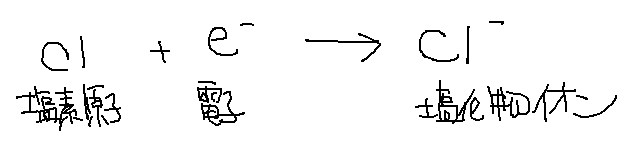 Cl + e⁻ → Cl⁻
塩素原子 電子 塩化物イオン